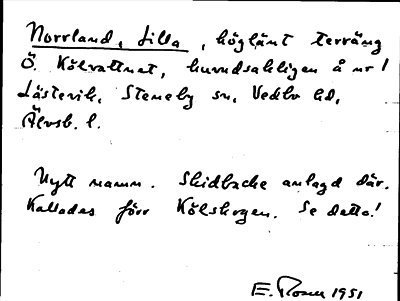 Norrland, Lilla, höglänt terräng
Ö. Kölvattnet, huvudsakligen å nr 1
Lästervik, Steneby sn, Vedbo hd,
Älvsb. l.
Nytt namn. Skidbacke anlagd där.
Kallades förr Kölskogen. Se detta!
E. Rosell 1951